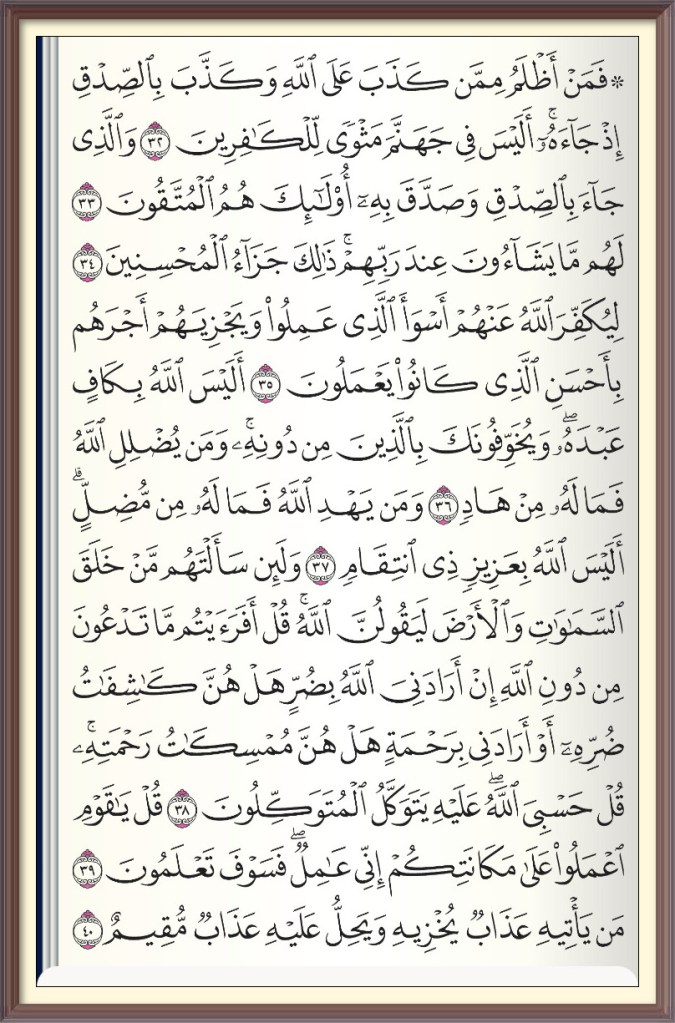 ۞ فَمَنْ أَظْلَمُ مِمَّن كَذَبَ عَلَى ٱللَّهِ وَكَذَّبَ بِٱلصِّدْقِ
إِذْ جَآءَهُۥٓۚ أَلَيْسَ فِى جَهَنَّمَ مَثْوًى لِّلْكَٰفِرِينَ ٣٢ وَٱلَّذِى
جَآءَ بِٱلصِّدْقِ وَصَدَّقَ بِهِۦٓ أُو۟لَٰٓئِكَ هُمُ ٱلْمُتَّقُونَ ٣٣
لَهُم مَّا يَشَآءُونَ عِندَ رَبِّهِمْۚ ذَٰلِكَ جَزَآءُ ٱلْمُحْسِنِينَ ٣٤
لِيُكَفِّرَ ٱللَّهُ عَنْهُمْ أَسْوَأَ ٱلَّذِى عَمِلُوا۟ وَيَجْزِيَهُمْ أَجْرَهُم
بِأَحْسَنِ ٱلَّذِى كَانُوا۟ يَعْمَلُونَ ٣٥ أَلَيْسَ ٱللَّهُ بِكَافٍ
عَبْدَهُۥۖ وَيُخَوِّفُونَكَ بِٱلَّذِينَ مِن دُونِهِۦۚ وَمَن يُضْلِلِ ٱللَّهُ
فَمَا لَهُۥ مِنْ هَادٍ ٣٦ وَمَن يَهْدِ ٱللَّهُ فَمَا لَهُۥ مِن مُّضِلٍّۗ
أَلَيْسَ ٱللَّهُ بِعَزِيزٍ ذِى ٱنتِقَامٍ ٣٧ وَلَئِن سَأَلْتَهُم مَّنْ خَلَقَ
ٱلسَّمَٰوَٰتِ وَٱلْأَرْضَ لَيَقُولُنَّ ٱللَّهُۚ قُلْ أَفَرَءَيْتُم مَّا تَدْعُونَ
مِن دُونِ ٱللَّهِ إِنْ أَرَادَنِىَ ٱللَّهُ بِضُرٍّ هَلْ هُنَّ كَٰشِفَٰتُ
ضُرِّهِۦٓ أَوْ أَرَادَنِى بِرَحْمَةٍ هَلْ هُنَّ مُمْسِكَٰتُ رَحْمَتِهِۦۚ
قُلْ حَسْبِىَ ٱللَّهُۖ عَلَيْهِ يَتَوَكَّلُ ٱلْمُتَوَكِّلُونَ ٣٨ قُلْ يَٰقَوْمِ
ٱعْمَلُوا۟ عَلَىٰ مَكَانَتِكُمْ إِنِّى عَٰمِلٌۖ فَسَوْفَ تَعْلَمُونَ ٣٩
مَن يَأْتِيهِ عَذَابٌ يُخْزِيهِ وَيَحِلُّ عَلَيْهِ عَذَابٌ مُّقِيمٌ ٤٠